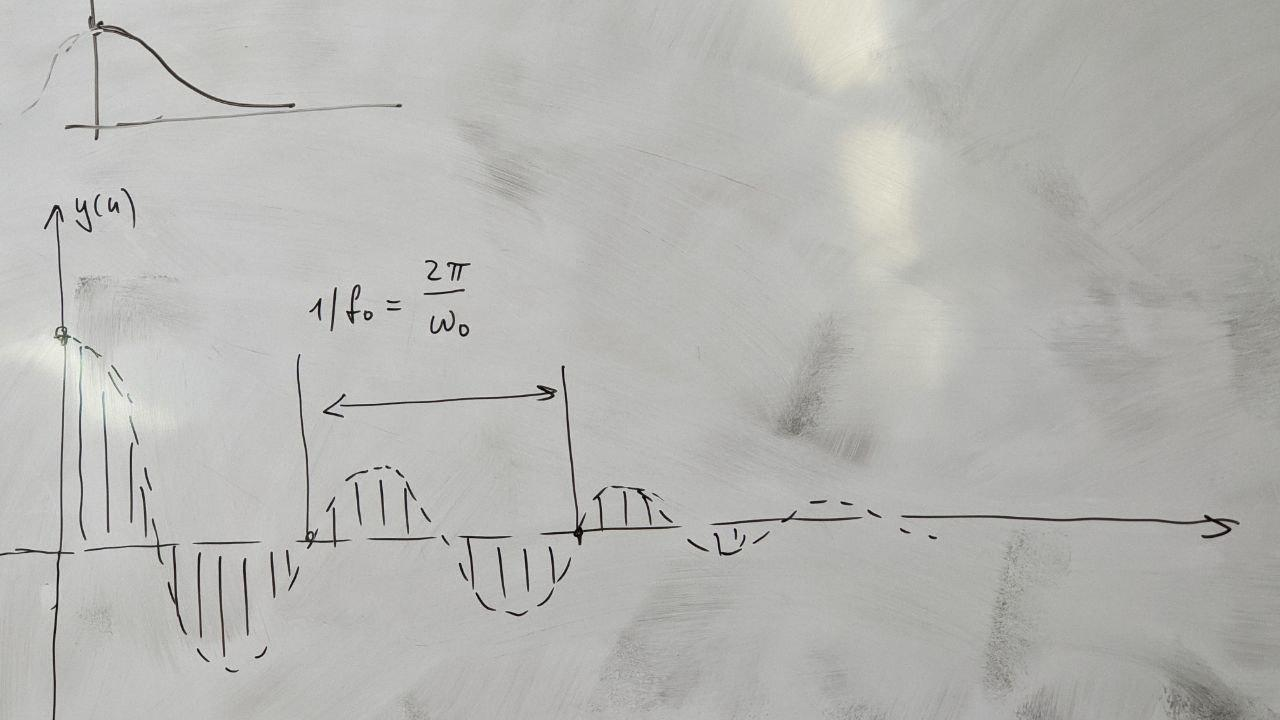 y(n)
1/f₀ = 2π/ω₀